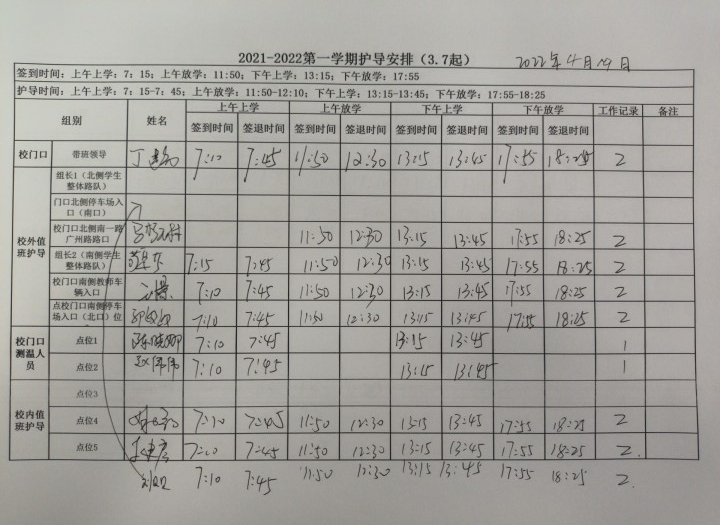 2021-2022第一学期护导安排（3.7起） 2022年4月19日
签到时间：上午上学：7：15；上午放学：11:50；下午上学：13:15；下午放学：17:55
护导时间：上午上学：7：15-7：45；上午放学：11:50-12:10；下午上学：13:15-13:45；下午放学：17:55-18:25
组别 姓名 上午上学 上午放学 下午上学 下午放学 工作记录 备注
签到时间 签退时间 签到时间 签退时间 签到时间 签退时间 签到时间 签退时间
校门口 带班领导 7:10 7:45 11:50 12:30 13:15 13:45 17:55 18:25 2
校外值班护导
组长1（北侧学生整体路队）
门口北侧停车场入口（南口）
校门口北侧南一路广州路路口 11:50 12:30 13:15 13:45 17:55 18:25 2
组长2（南侧学生整体路队） 7:15 7:45 11:50 12:30 13:15 13:45 17:55 18:25 2
校门口南侧教师车辆入口 7:10 7:45 11:50 12:30 13:15 13:45 17:55 18:25 2
点校门口南侧停车场入口（北口）位 7:10 7:45 11:50 12:30 13:15 13:45 17:55 18:25 2
校门口测温人员
点位1 7:10 7:45 13:15 13:45 1
点位2 赵伟伟 7:10 7:45 13:15 13:45 1
校内值班护导
点位3
点位4 7:10 7:45 11:50 12:30 13:15 13:45 17:55 18:25 2
点位5 7:10 7:45 11:50 12:30 13:15 13:45 17:55 18:25 2.
7:10 7:45 11:50 12:30 13:15 13:45 17:55 18:25 2